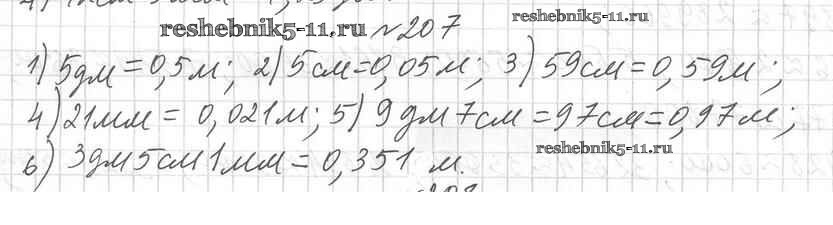 reshebnik5-11.ru №207 reshebnik5-11.ru
1) 5дм = 0,5м; 2) 5см = 0,05м; 3) 59см = 0,59м;
4) 21мм = 0,021м; 5) 9дм 7см = 97см = 0,97м;
6) 3дм 5см 1мм = 0,351 м.
reshebnik5-11.ru